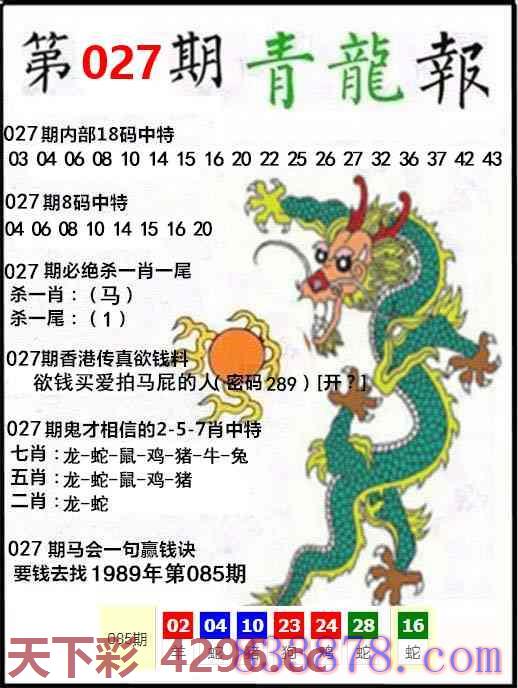 第027期青龍報
027期内部18码中特
03 04 06 08 10 14 15 16 20 22 25 26 27 32 36 37 42 43
027期8码中特
04 06 08 10 14 15 16 20
027期必绝杀一肖一尾
杀一肖：（马）
杀一尾：（1）
027期香港传真欲钱料
欲钱买爱拍马屁的人(密码289)[开？]
027期鬼才相信的2-5-7肖中特
七肖：龙-蛇-鼠-鸡-猪-牛-兔
五肖：龙-蛇-鼠-鸡-猪
二肖：龙-蛇
027期马会一句赢钱诀
要钱去找1989年第085期
085期 02 04 10 23 24 28 16
羊 蛇 猪 狗 鸡 蛇 蛇
天下彩 4296.cc